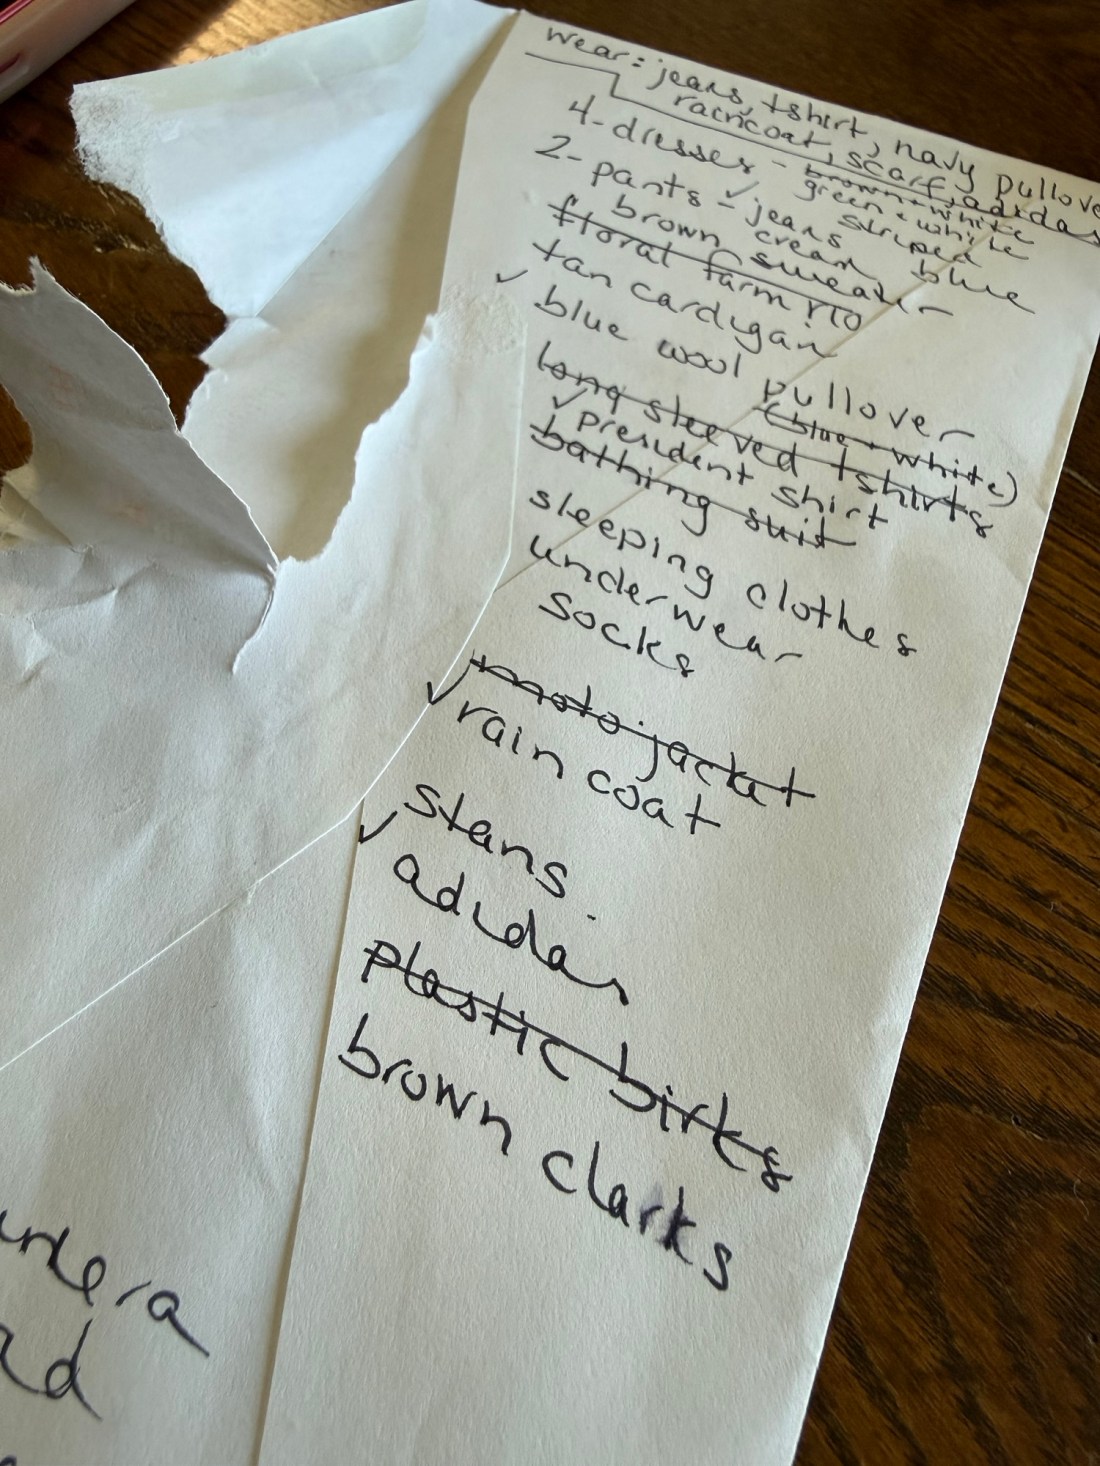 wear: jeans, tshirt, navy pullover
raincoat, scarf, adidas
4-dresses - brown + white
green + white
striped
blue
2-pants - ✓ jeans
cream
brown sweater
floral farm rio
tan cardigan
✓ blue wool pullover
long sleeved tshirts
(blue + white)
✓ President shirt
bathing suit
sleeping clothes
underwear
socks
moto jacket
✓ rain coat
stans
✓ adidas
plastic birks
brown clarks